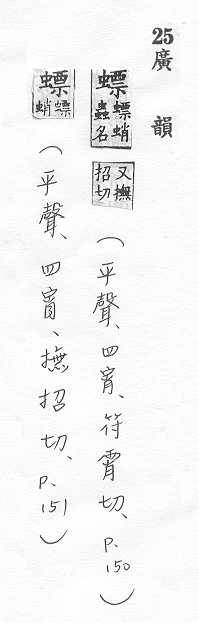 25廣韻
螵螵蛸蟲名又撫招切(平聲、四宵、符霄切、p.150)
螵螵蛸(平聲、四宵、撫招切、p.151)